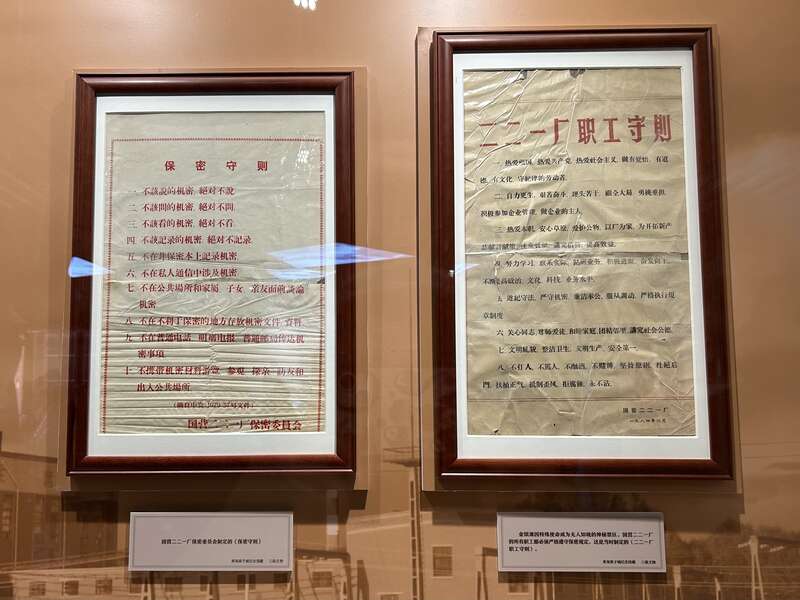 保密守则
一 不該說的机密，絕对不說
二 不該問的机密，絕对不問
三 不該看的机密，絕对不看
四 不該記录的机密，絕对不記录
五 不在非保密本上記录机密
六 不在私人通信中涉及机密
七 不在公共場所和家屬、子女、亲友面前談論
机密
八 不在不利于保密的地方存放机密文件、資料
九 不在普通电話、明碼电报、普通邮局傳达机
密事項
十 不携带机密材料游覽、参观、探亲、訪友和
出入公共場所
国营二二一厂保密委員会
二二一厂职工守则
一、热爱祖国，热爱共产党，热爱社会主义，做有理想、有道
德、有文化、守纪律的劳动者。
二、自力更生，艰苦奋斗，埋头苦干，顾全大局，勇挑重担，
积极参加企业管理，做企业的主人。
三、热爱本职，安心草原，爱护公物，以厂为家，为开拓新产
四、努力学习，
不断提高政治、文化、科技、业务水平。
五、遵紀守法，严守机密，廉洁奉公，服从调动，严格执行规
章制度。
六、关心同志，尊师爱徒，和睦家庭，团結邻里，讲究社会公德。
七、文明礼貌，整洁卫生，文明生产，安全第一。
八、不打人，不骂人，不酗酒，不赌博，坚持原则，杜絕后
門，扶植正气，抵制歪风，拒腐蚀，永不沾。
国营二二一厂
国营二二一厂保密委员会制定的《保密守则》
青海原子城纪念馆藏 三级文物
金银滩因特殊使命成为无人知晓的神秘禁区，国营二二一厂
的所有职工都必须严格遵守保密规定，这是当时制定的《二二一厂
职工守则》。
青海原子城纪念馆藏 三级文物